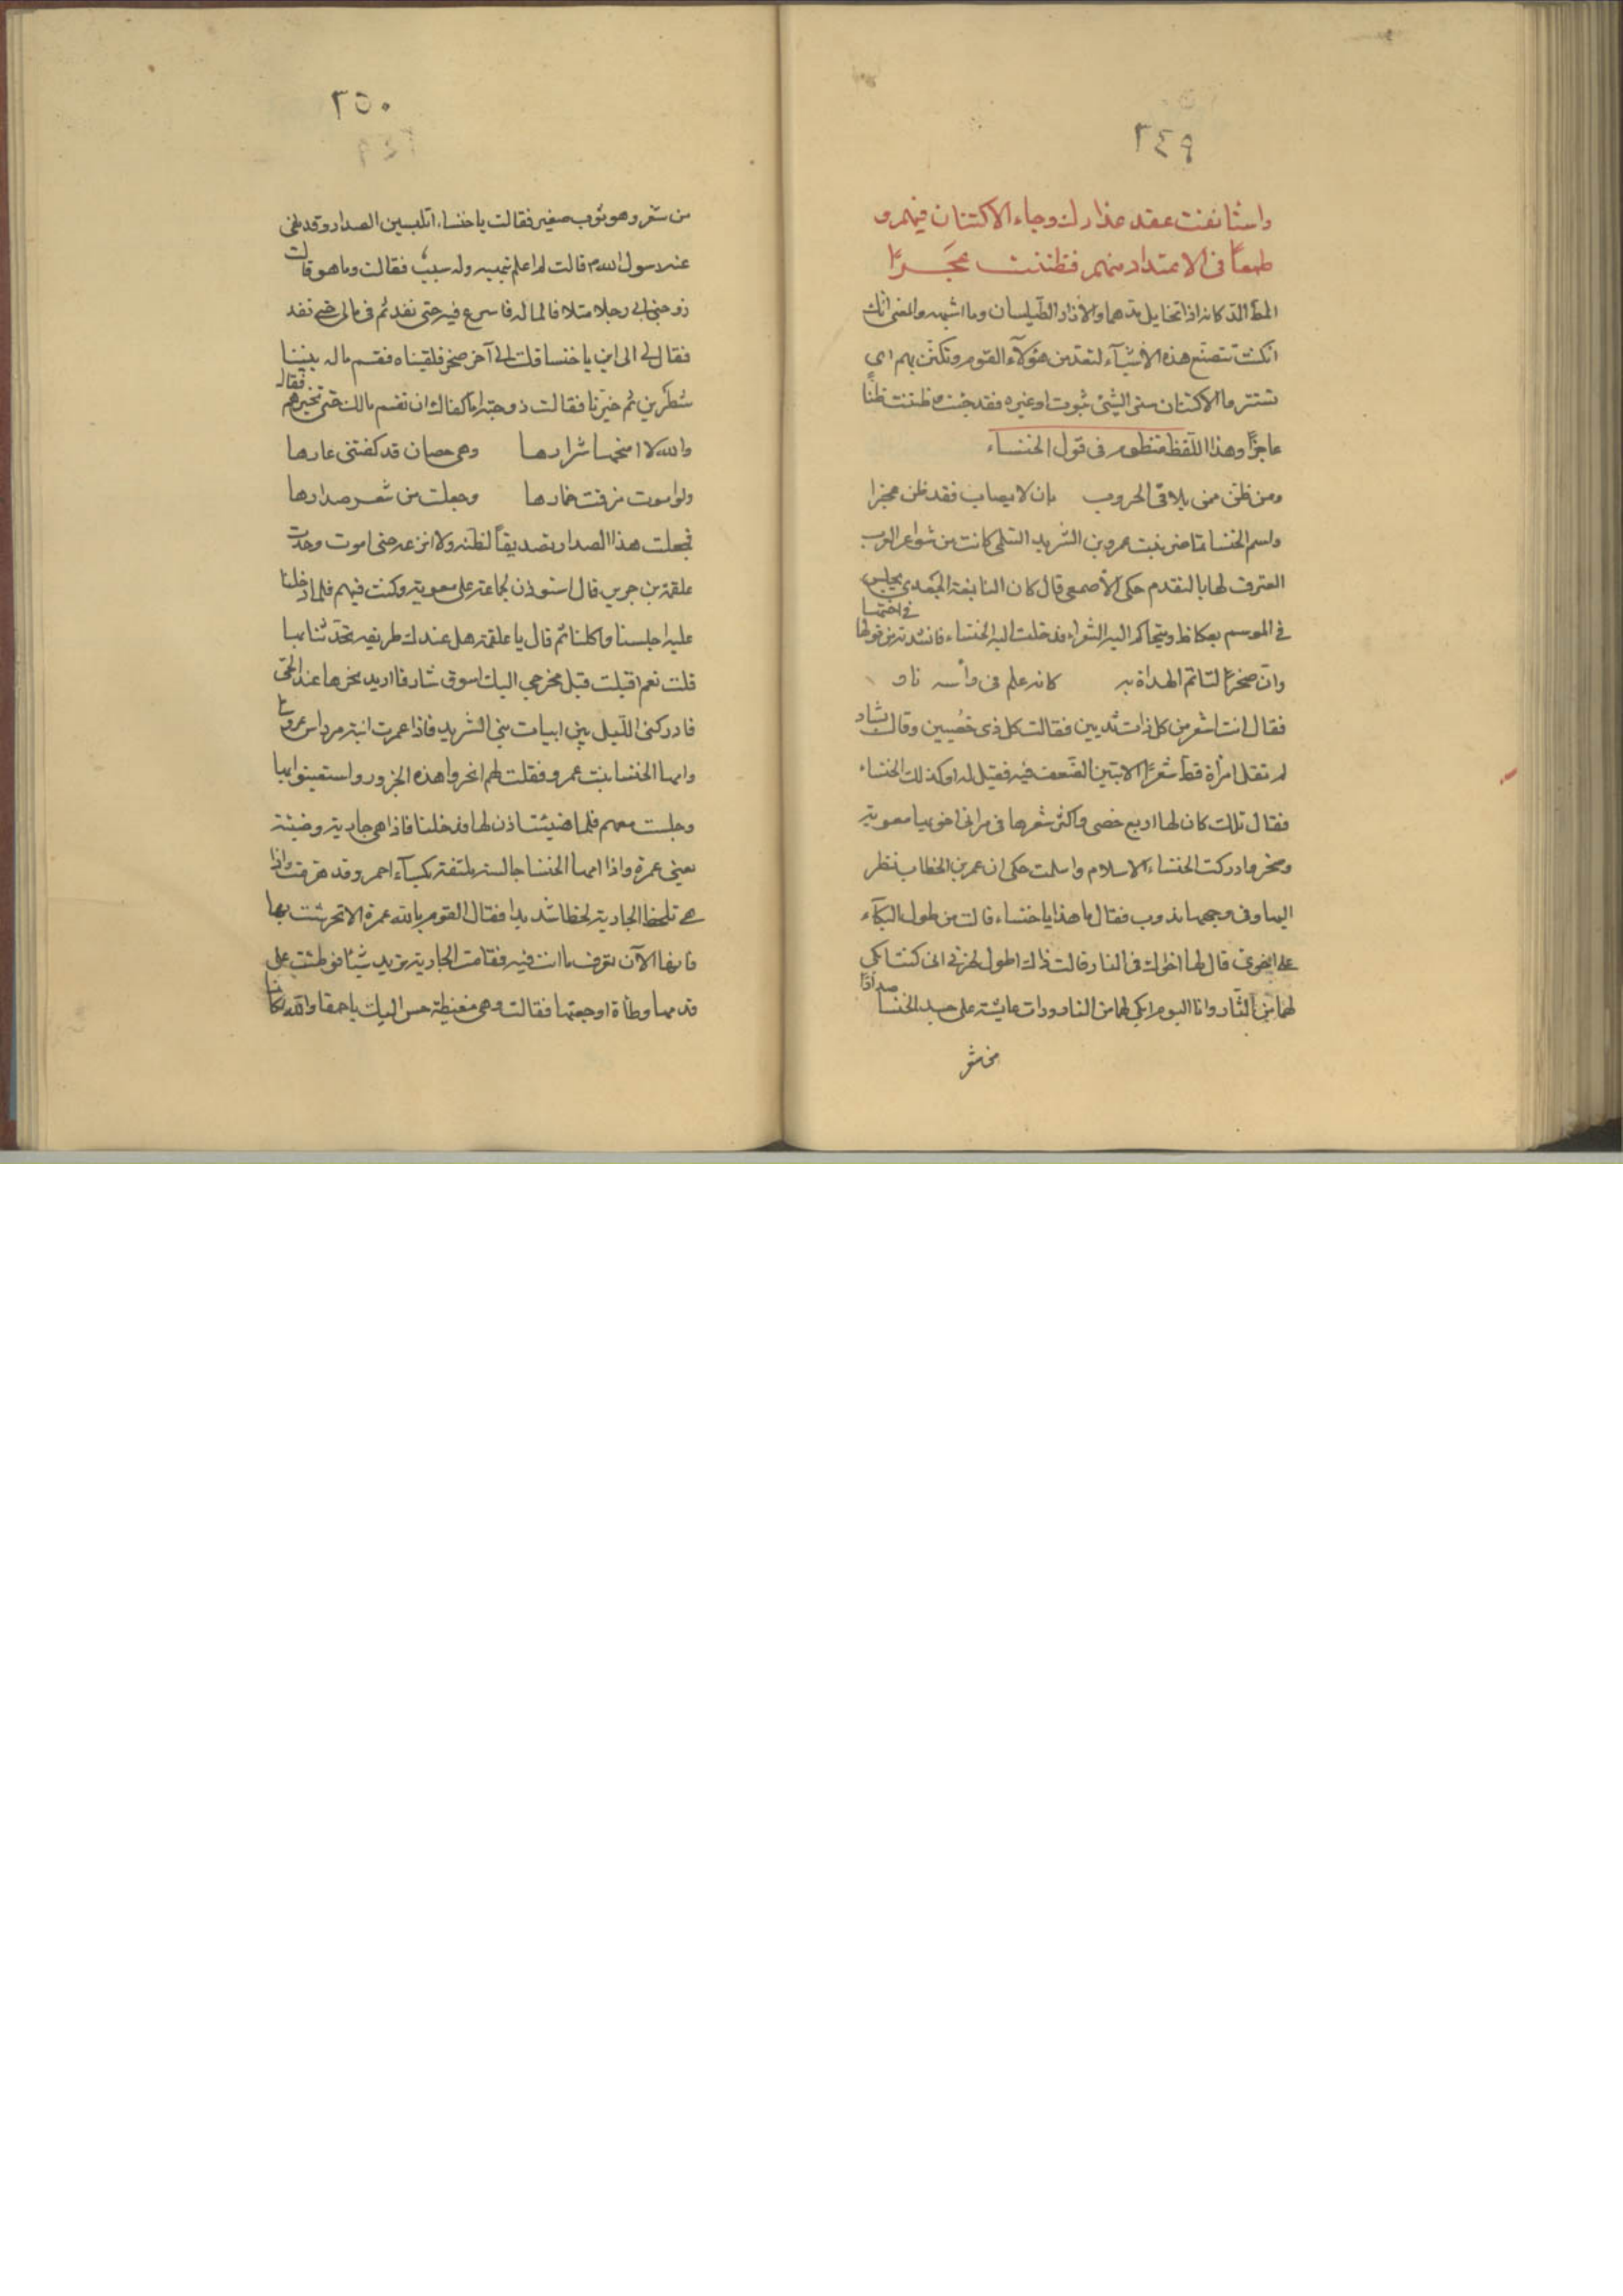 ٢٤٩
واستأنفت عقد عذارك وجاء الاكتنان فيهم و
طمعًا فى الاعتداد منهم فظننت عجزًا
انك كنت تتصنع هذه الأشيآء لتعد من هؤلآء القوم وتكتن بهم اى
تستتر والاكتنان ستر الشئ بثوب او غيره فقد ظننت ظنًا
عاجزًا وهذا اللفظ منظوم فى قول الخنساء
ومن ظن ممن يلاقى الحروب بان لا يصاب فقد ظن عجزا
واسم الخنسا تماضر بنت عمرو بن الشريد السلمى كانت من شواعر العرب
المعترف لها بالتقدم حكى الأصمعى قال كان النابغة الجعدى يجلس
فى الموسم بعكاظ ويتحاكم اليه الشعراء فدخلت اليه الخنساء فانشدته من قولها
فى اختها
وان صخرا لتاتم الهداة به كانه علم فى رأسه نار
فقال انت اشعر من كل ذات ثديين فقالت كل ذى خصيين وقال بشار
لم تقل امرأة قط شعرًا الا تبين الضعف فيه فقيل له او كذلك الخنساء
فقال تلك كان لها اربع خصى واكثر شعرها فى مراثى اخويها معوية
وصخر وادركت الخنساء الاسلام واسلمت حكى ان عمر بن الخطاب نظر
اليها وفى وجهها ندوب فقال ما هذا يا خنساء قالت من طول البكآء
على اخوى قال لها اخواك فى النار قالت ذاك اطول لحزنى انى كنت ابكى
لهما من الثار وانا اليوم ابكى لهما من النار ورات عايشة على جسد الخنسا صدارًا
من شعر
٢٥٠
من شعر وهو ثوب صغير فقالت يا خنساء اتلبسين الصدار وقد نهى
عنه رسول الله م قالت لم اعلم بنهيه وله سبب فقالت وما هو قالت
زوجنى ابى رجلا متلافا لماله فاسرع فيه حتى نفد ثم فى مالى حتى نفد
فقال لى الى اين يا خنسا قلت الى اخى صخر فلقيناه فقسم ماله بيننا
شطرين ثم خيرنا فقالت زوجته اما كفاك ان تقسم مالك حتى تخيرهم فقال
والله لا امنحها شرارها وهى حصان قد كفتنى عارها
ولو اموت مزقت خمارها وجعلت من شعر صدارها
فجعلت هذا الصدار تصديقًا لظنه ولا انزعه حتى اموت وحدث
علقمة بن جرير قال استوذن لجماعة على معوية وكنت فيهم فلما دخلنا
عليه اجلسنا واكلنا ثم قال يا علقمة هل عندك طريفة تحدثنا بها
قلت نعم اقبلت قبل مخرجى اليك اسوق شارفا اريد نحرها عند الحى
فادركنى الليل بين ابيات بنى الشريد فاذا عمرت ابنة مرداس عروسا
وامها الخنسا بنت عمرو فقلت لهم انحروا هذه الجزور واستعينوا بها
وجلست معهم فلما هيئت اذن لها فدخلنا فاذا هى جارية وضيئة
يعنى عمرة واذا امها الخنسا جالسة ملتفة بكسآء احمر وقد هرمت واذا
هى تلحظ الجارية لحظا شديدا فقال القوم بالله عمرة الا تحرشت بها
فانها الآن تعرف ما انت فيه فقامت الجارية تريد شيئا فوطئت على
قدمها وطأة اوجعتها فقالت وهى مغيظة حس اليك يا حمقا والله لكانما